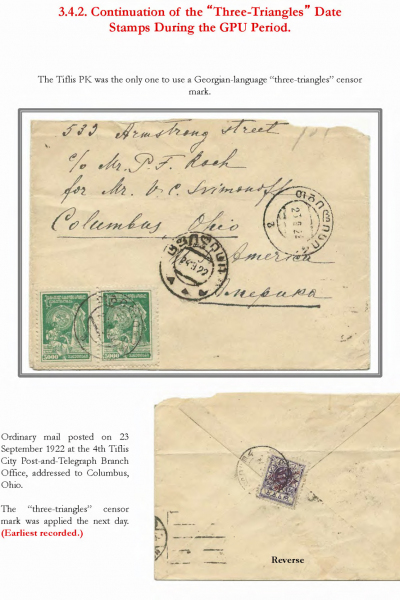 3.4.2. Continuation of the “Three-Triangles” Date
Stamps During the GPU Period.
The Tiflis PK was the only one to use a Georgian-language “three-triangles” censor
mark.
533 Armstrong street
c/o Mr. P. F. Koch
for Mr.
Columbus, Ohio
America
Америка
5000 5000
Ordinary mail posted on 23
September 1922 at the 4th Tiflis
City Post-and-Telegraph Branch
Office, addressed to Columbus,
Ohio.
The “three-triangles” censor
mark was applied the next day.
(Earliest recorded.)
Reverse